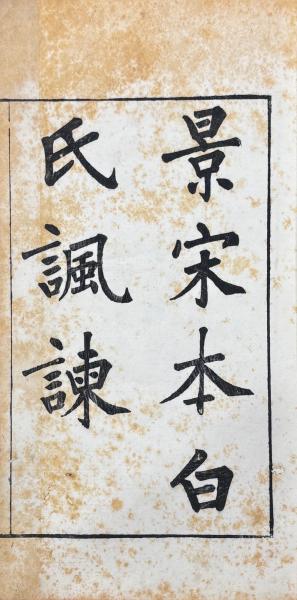 景宋本白
氏諷諫